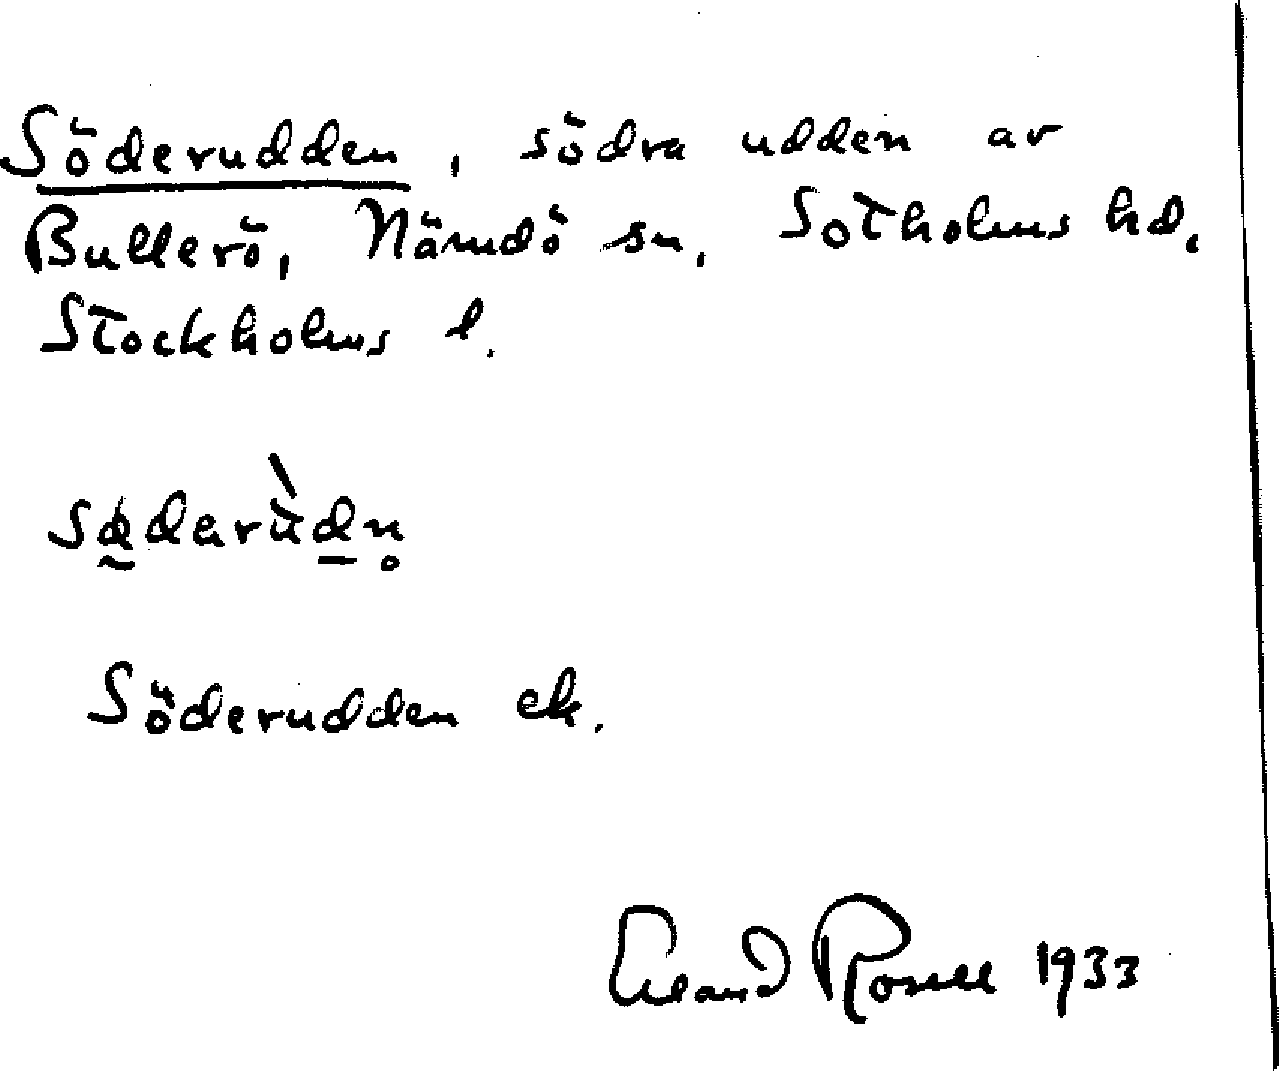 Söderudden, södra udden av
Bullerö, Nämdö sn, Sotholms hd,
Stockholms l.
Söderudden ek.
Erland Rosell 1933